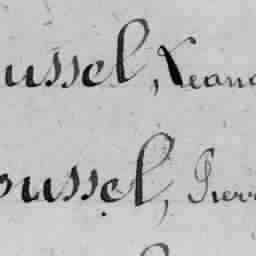 ussel, Leand
oussel, Pierr